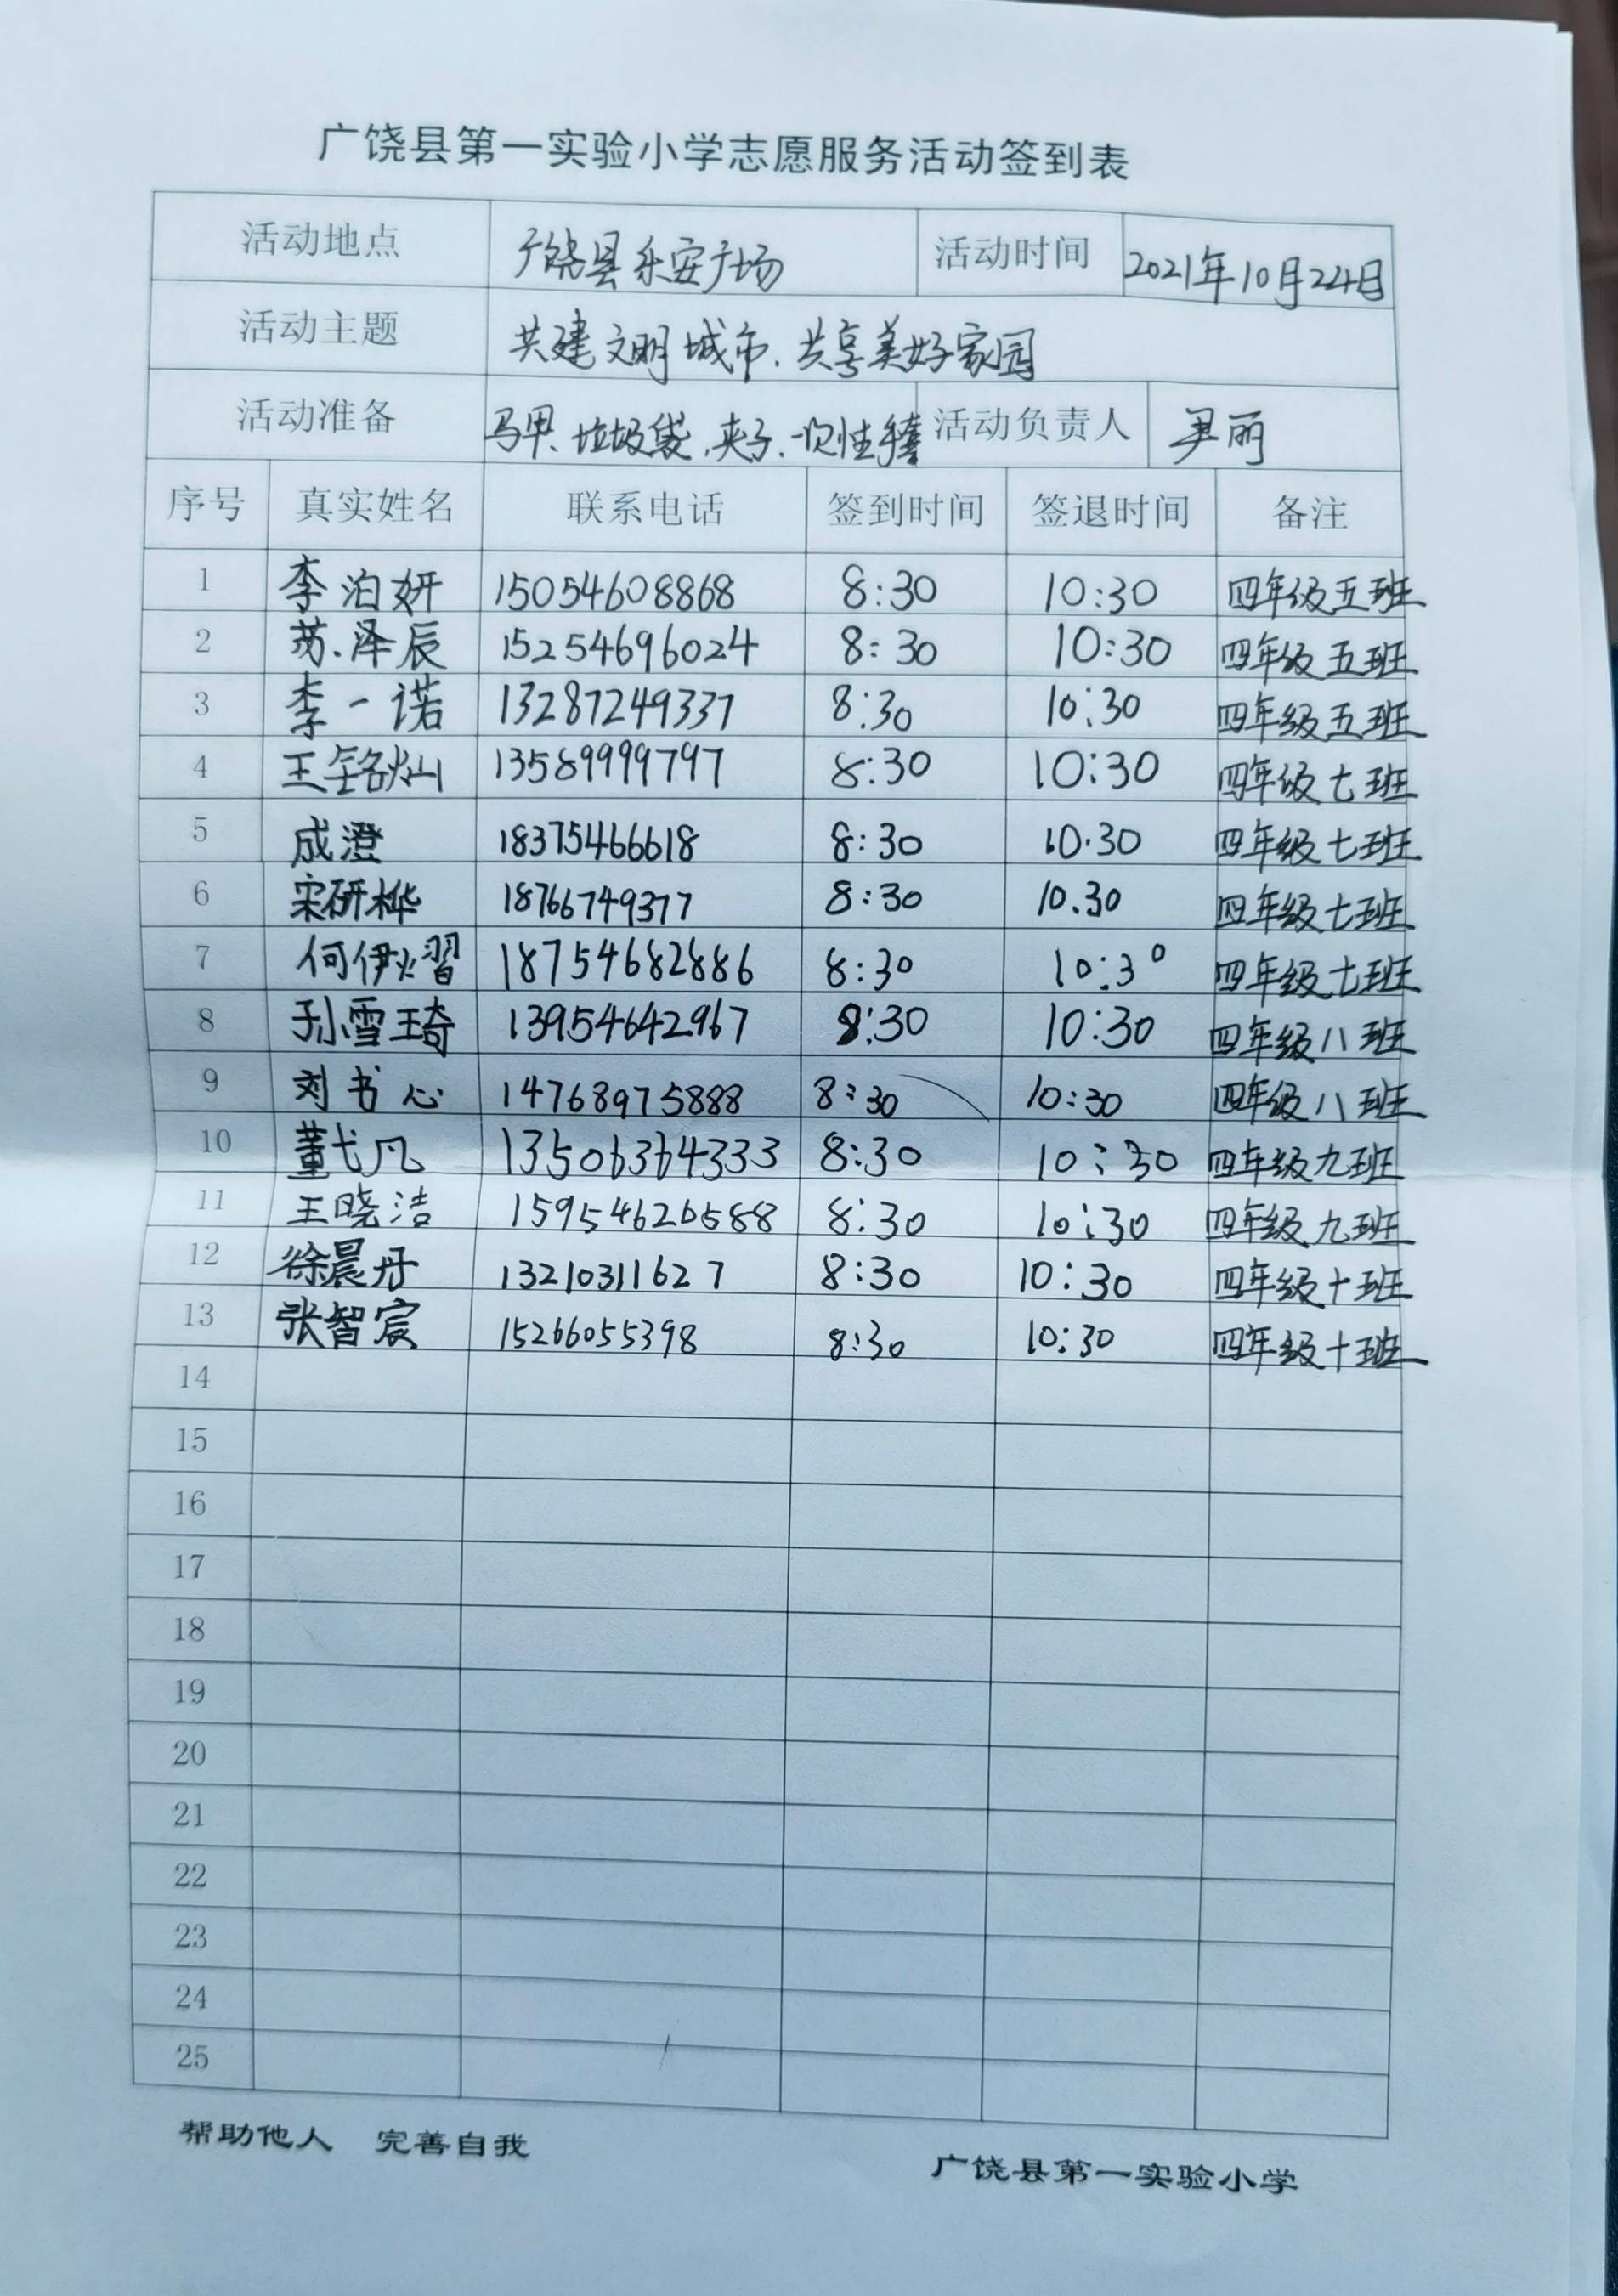 广饶县第一实验小学志愿服务活动签到表
活动地点 广饶县乐安广场 活动时间 2021年10月24日
活动主题 共建文明城市、共享美好家园
活动准备 马甲、垃圾袋、夹子、一次性手套 活动负责人 尹丽
序号 真实姓名 联系电话 签到时间 签退时间 备注
1 李泊妍 15054608868 8:30 10:30 四年级五班
2 苏泽辰 15254696024 8:30 10:30 四年级五班
3 李一诺 13287249337 8:30 10:30 四年级五班
4 王铭灿 13589999797 8:30 10:30 四年级七班
5 成澄 18375466618 8:30 10.30 四年级七班
6 宋研桦 18766749377 8:30 10.30 四年级七班
7 何伊熠 18754682886 8:30 10:30 四年级七班
8 孙雪琦 13954642967 8:30 10:30 四年级八班
9 刘书心 14768975888 8:30 10:30 四年级八班
10 董弋凡 13506364333 8:30 10:30 四年级九班
11 王晓洁 15954626588 8:30 10:30 四年级九班
12 徐晨丹 13210311627 8:30 10:30 四年级十班
13 张智宸 15266055398 8:30 10:30 四年级十班
14
15
16
17
18
19
20
21
22
23
24
25
帮助他人 完善自我
广饶县第一实验小学